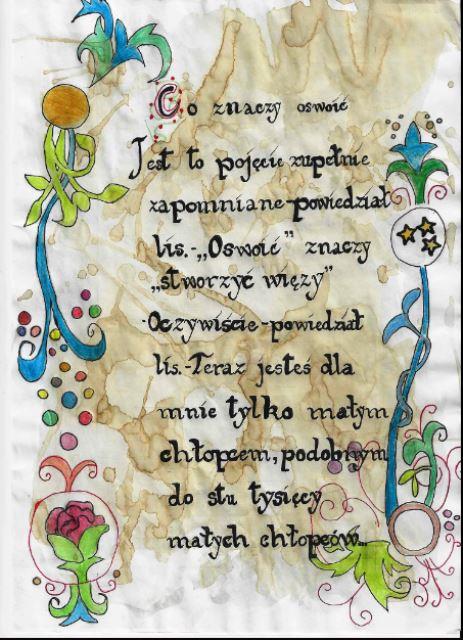 Co znaczy oswoić
Jest to pojęcie zupełnie
zapomniane-powiedział
lis.-„Oswoić” znaczy
„stworzyć więzy”
-Oczywiście-powiedział
lis.-Teraz jesteś dla
mnie tylko małym
chłopcem, podobnym
do stu tysięcy
małych chłopców...